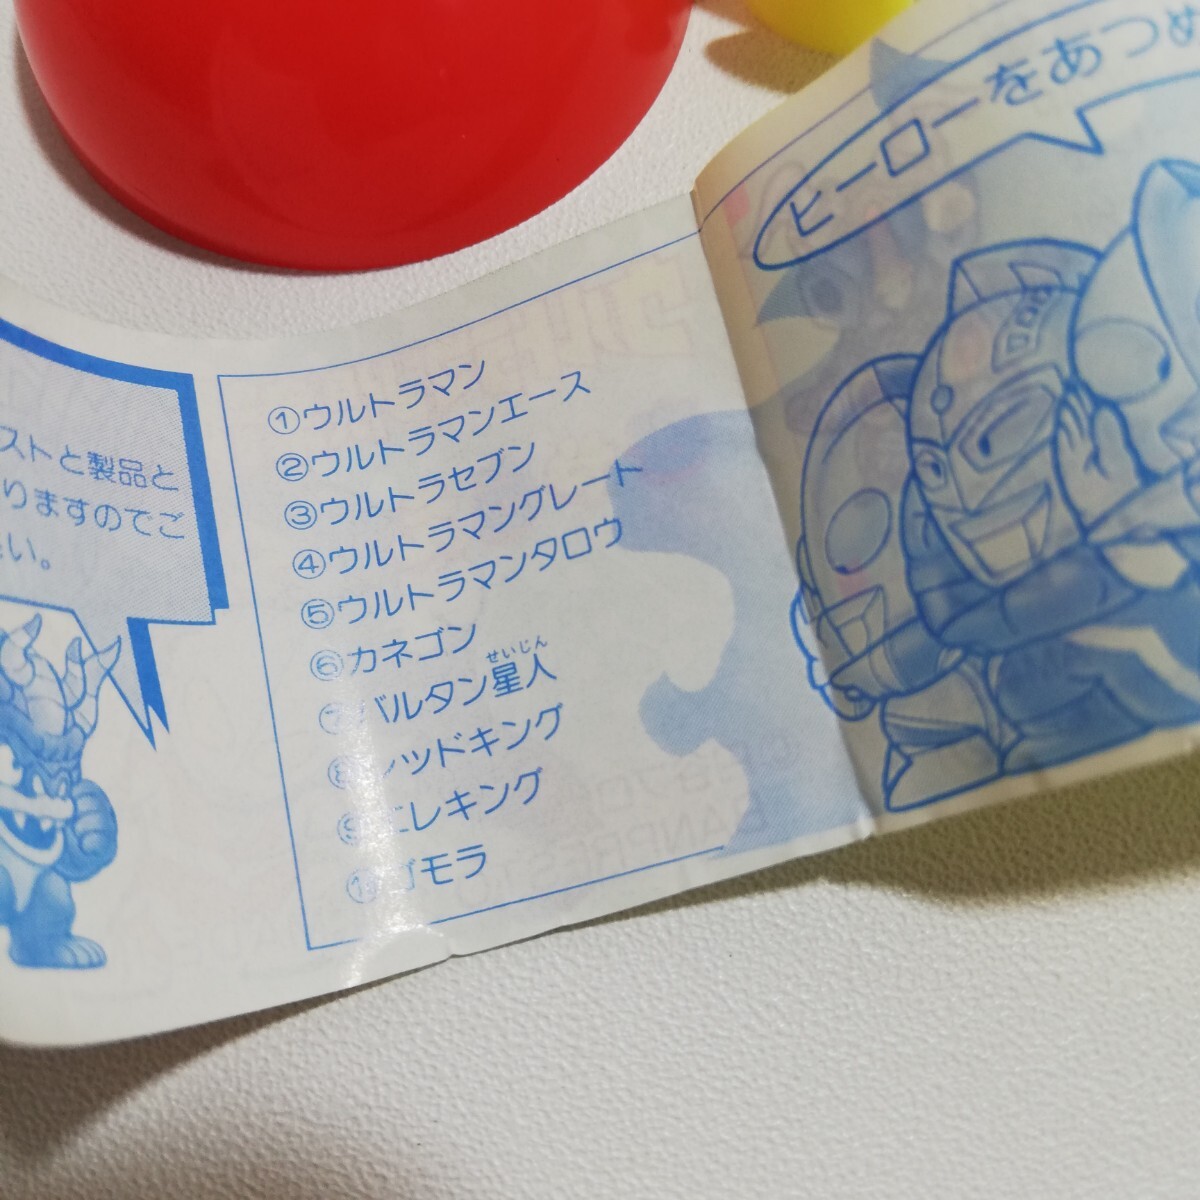 ヒーローをあつめ
ストと製品と
りますのでご
い。
①ウルトラマン
②ウルトラマンエース
③ウルトラセブン
④ウルトラマングレート
⑤ウルトラマンタロウ
⑥カネゴン
⑦バルタン星人
せいじん
⑧レッドキング
⑨エレキング
⑩ゴモラ